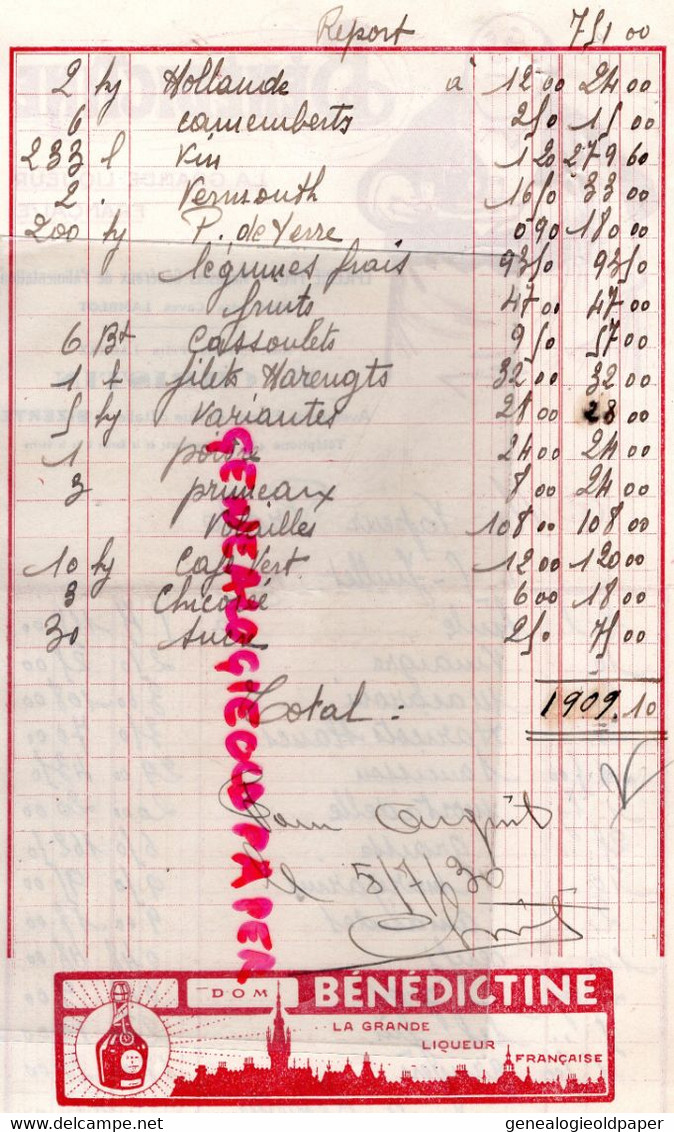 Report 751 00
2 kg Hollande à 12 00 24 00
6 camemberts 2 50 15 00
233 l Vin 1 20 279 60
2 . Vermouth 16 50 33 00
200 kg P. de Terre 0 90 180 00
légumes frais 93 50 93 50
fruits 47 00 47 00
6 Bt Cassoulets 9 50 57 00
1 f filets Harengts 32 00 32 00
5 kg Variantes 28 00 28 00
1 poivre 24 00 24 00
3 pruneaux 8 00 24 00
Volailles 108 00 108 00
10 kg Café Vert 12 00 120 00
3 Chicorée 6 00 18 00
30 2 50 75 00
Total : 1909.10
Pour Acquit
le 5/7/30
GENEALOGIEOLDPAPER
DOM BÉNÉDICTINE
LA GRANDE
LIQUEUR FRANÇAISE
genealogieoldpaper